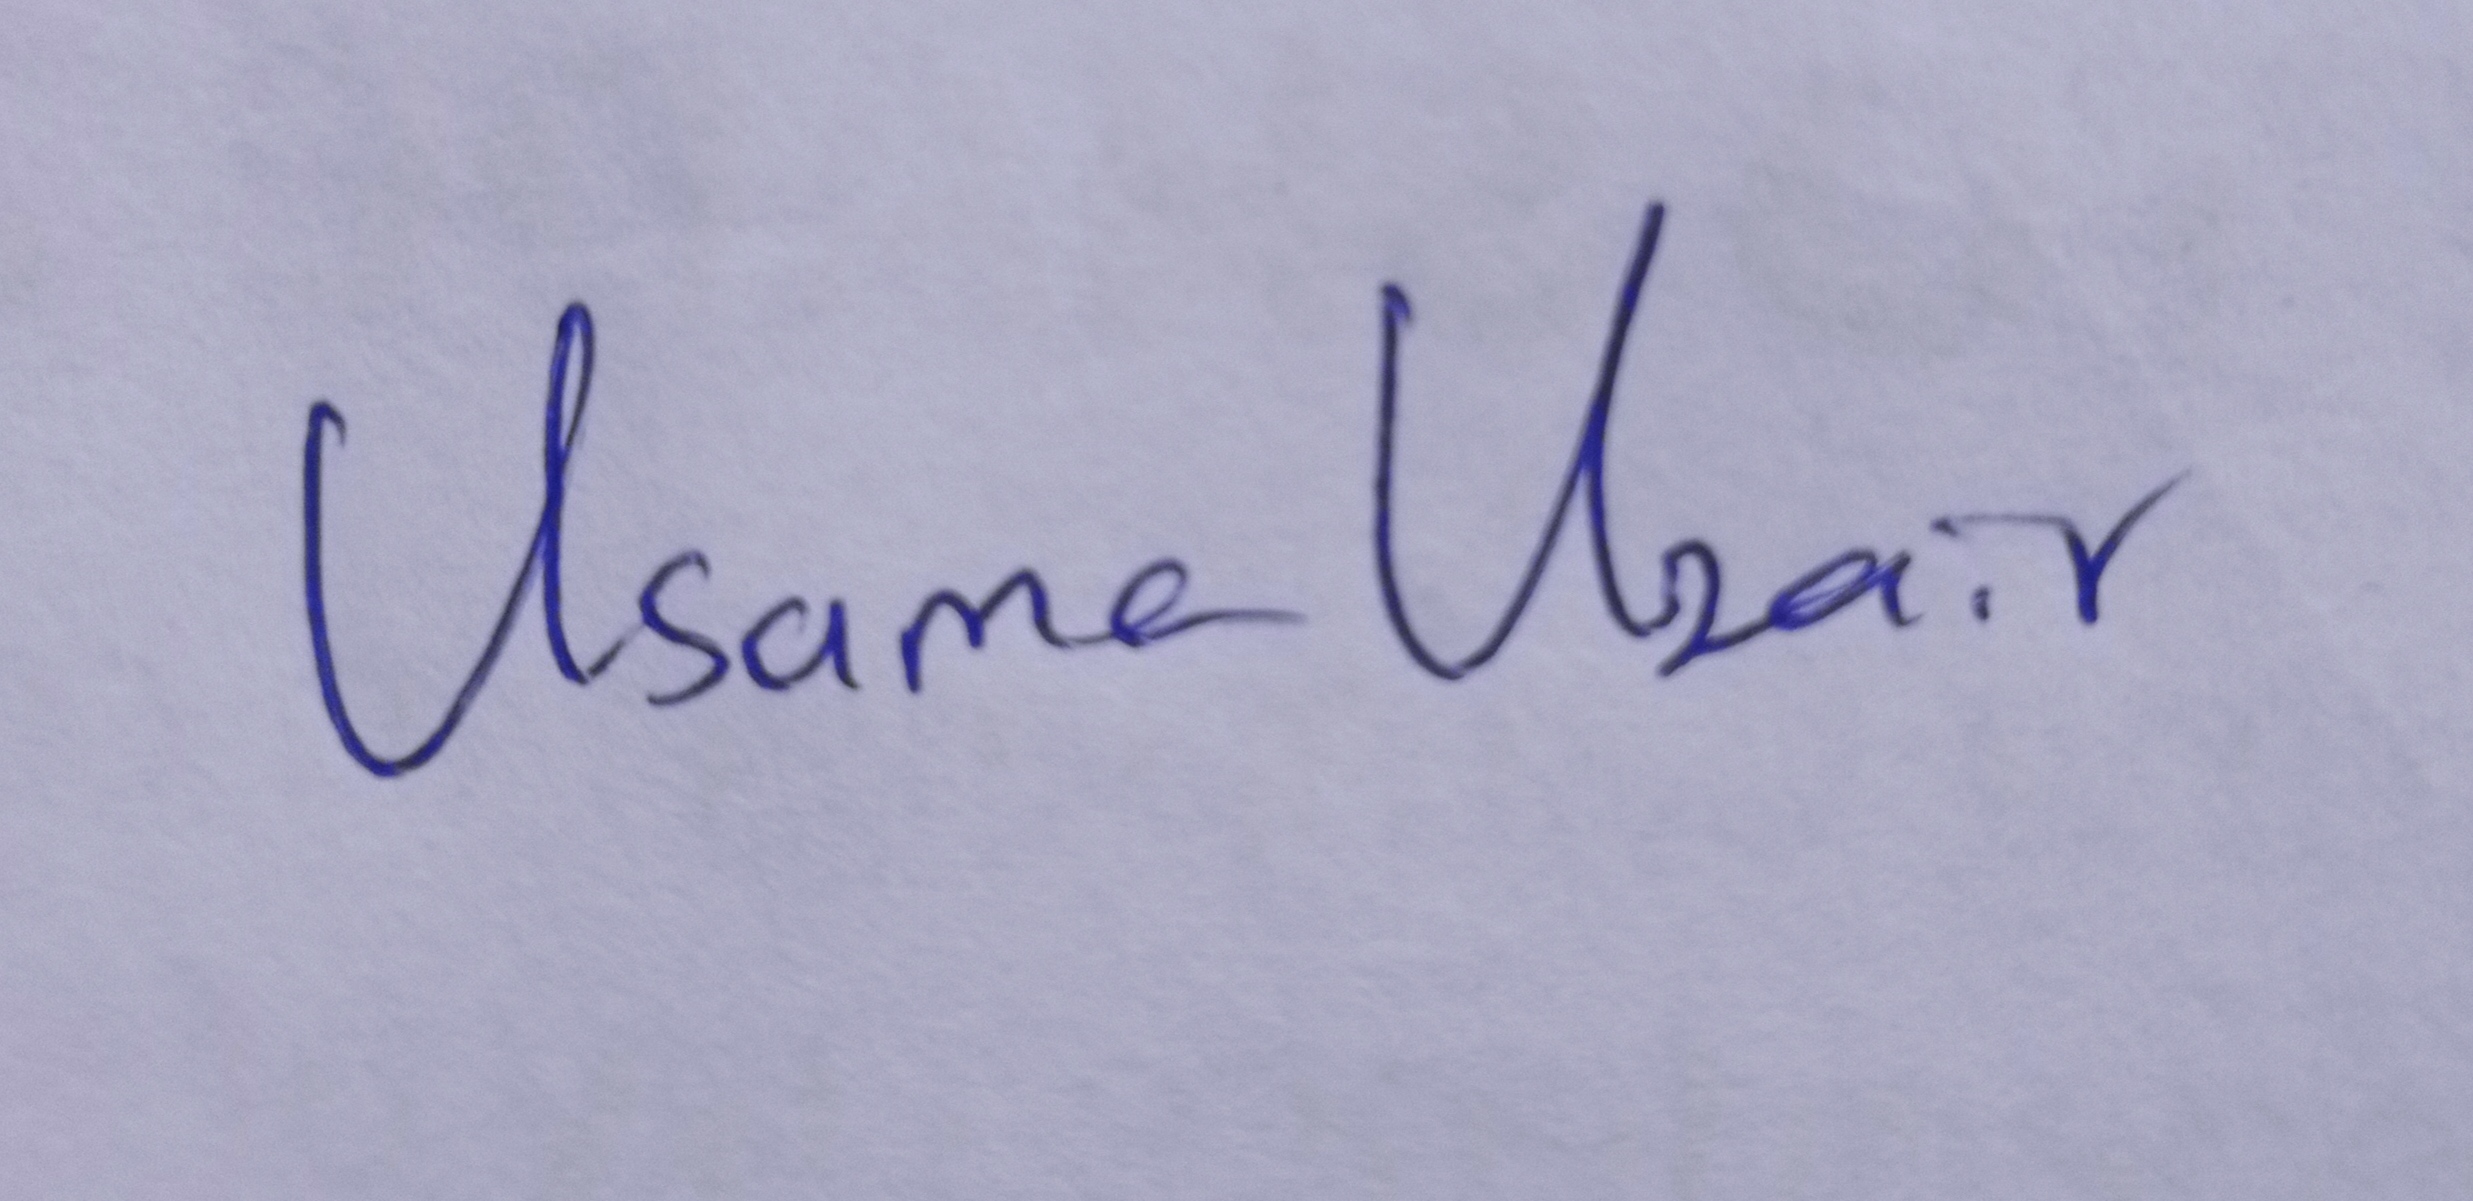 Usama Uzair